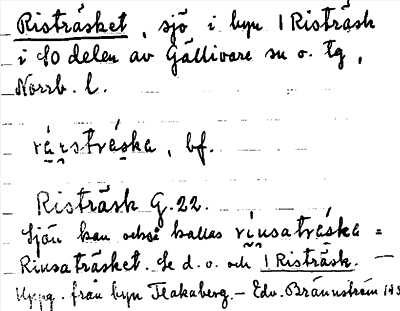 Risträsket, sjö i byn 1 Risträsk
i SO delen av Gällivare sn o. tg,
Norrb. l.
rı́sstrạ́ska, bf.
Risträsk G.22.
Sjön kan också kallas rı́nsatrạ́ska =
Rinsaträsket. Se d. o. och 1 Risträsk. —
Uppg. från byn Flakaberg. — Edv. Brännström